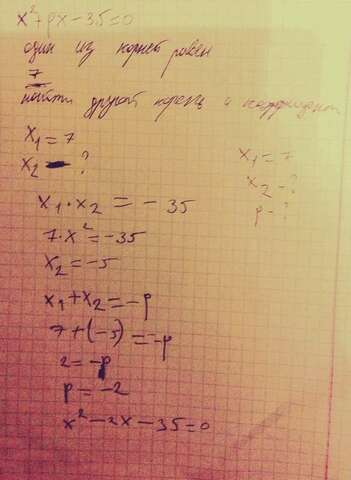 x² + px - 35 = 0
один из корней равен
7
найти другой корень и коэффициент
x₁ = 7
x₂ - ?
x₁ = 7
x₂ - ?
p - ?
x₁ · x₂ = - 35
7 · x² = -35
x₂ = -5
x₁ + x₂ = -p
7 + (-5) = -p
2 = -p
p = -2
x² - 2x - 35 = 0